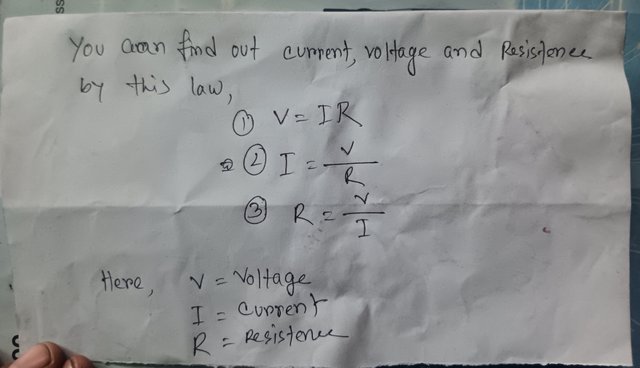 You can find out current, voltage and Resistence
by this law,
① V = IR
② I = V/R
③ R = V/I
Here, V = Voltage
I = Current
R = Resistence